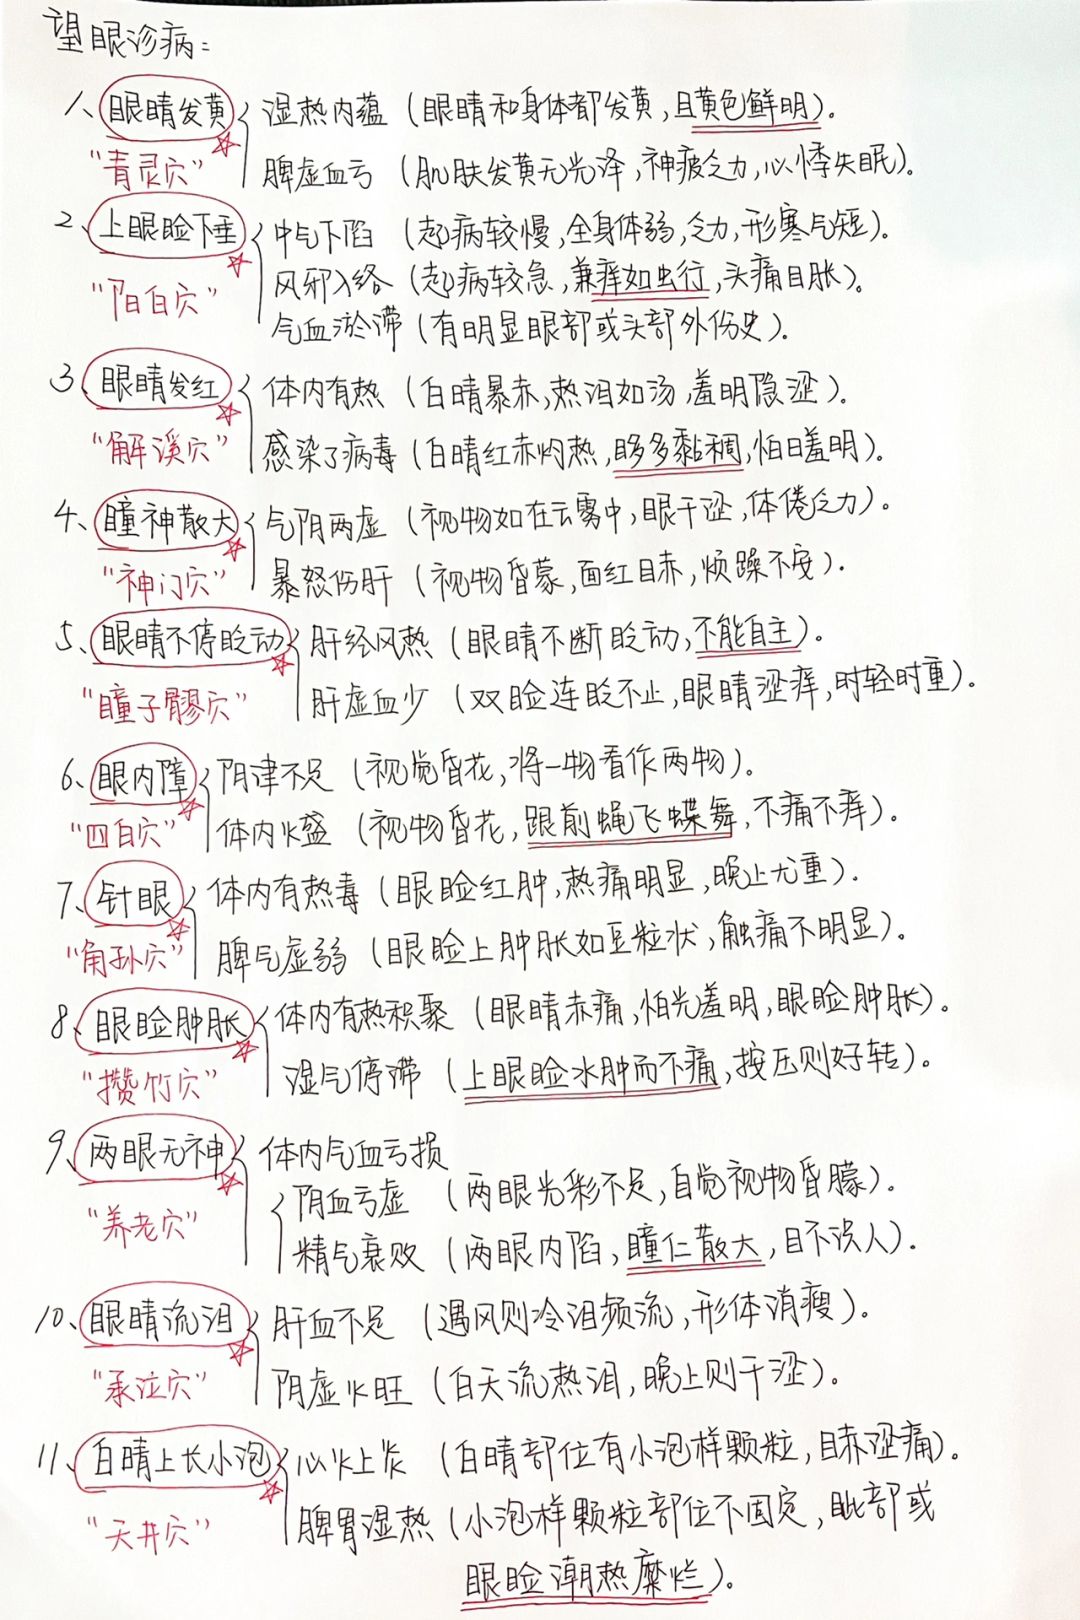 望眼诊病：
1、眼睛发黄 湿热内蕴（眼睛和身体都发黄，且黄色鲜明）。
"青灵穴" 脾虚血亏（肌肤发黄无光泽，神疲乏力，心悸失眠）。
2、上眼睑下垂 中气下陷（起病较慢，全身体弱，乏力，形寒气短）。
"阳白穴" 风邪入络（起病较急，兼痒如虫行，头痛目胀）。
气血淤滞（有明显眼部或头部外伤史）。
3、眼睛发红 体内有热（白睛暴赤，热泪如汤，羞明隐涩）。
"解溪穴" 感染了病毒（白睛红赤灼热，眵多黏稠，怕日羞明）。
4、瞳神散大 气阴两虚（视物如在云雾中，眼干涩，体倦乏力）。
"神门穴" 暴怒伤肝（视物昏蒙，面红目赤，烦躁不安）．
5、眼睛不停眨动 肝经风热（眼睛不断眨动，不能自主）。
"瞳子髎穴" 肝虚血少（双睑连眨不止，眼睛涩痒，时轻时重）．
6、眼内障 阴津不足（视觉昏花，将一物看作两物）。
"四白穴" 体内火盛（视物昏花，跟前蝇飞蝶舞，不痛不痒）．
7、针眼 体内有热毒（眼睑红肿，热痛明显，晚上尤重）．
"角孙穴" 脾气虚弱（眼睑上肿胀如豆粒状，触痛不明显）。
8、眼睑肿胀 体内有热积聚（眼睛赤痛，怕光羞明，眼睑肿胀）。
"攒竹穴" 湿气停滞（上眼睑水肿而不痛，按压则好转）。
9、两眼无神 体内气血亏损
阴血亏虚（两眼光彩不足，自觉视物昏朦）．
"养老穴" 精气衰败（两眼内陷，瞳仁散大，目不识人）．
10、眼睛流泪 肝血不足（遇风则冷泪频流，形体消瘦）．
"承泣穴" 阴虚火旺（白天流热泪，晚上则干涩）。
11、白睛上长小泡 心火上炎（白睛部位有小泡样颗粒，目赤涩痛）．
"天井穴" 脾胃湿热（小泡样颗粒部位不固定，眦部或
眼睑潮热糜烂）。